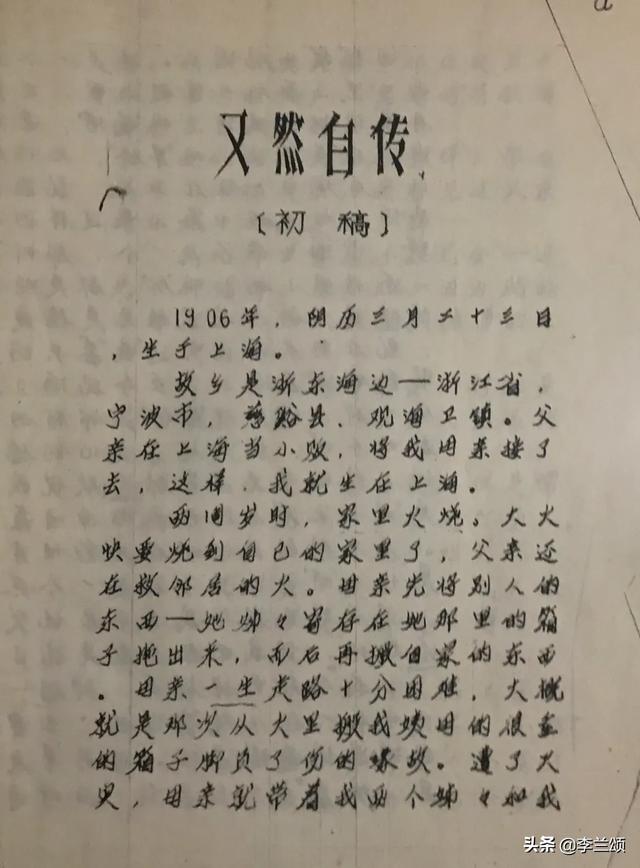 又然自传
〔初稿〕
1906年，阴历三月二十三日
，生于上海。
故乡是浙东海边—浙江省，
宁波市，慈谿县、观海卫镇。父
亲在上海当小贩，将我母亲接了
去，这样，我就生在上海。
两周岁时，家里火烧。大火
快要烧到自己的家里了，父亲还
在救邻居的火。母亲先将别人的
东西—她姊々寄存在她那里的箱
子拖出来，而后再搬自家的东西
。母亲一生走路十分困难，大概
就是那次从火里搬我姨母的很重
的箱子脚负了伤的缘故。遭了火
灾，母亲就带着我两个姊々和我
头条 @李兰颂